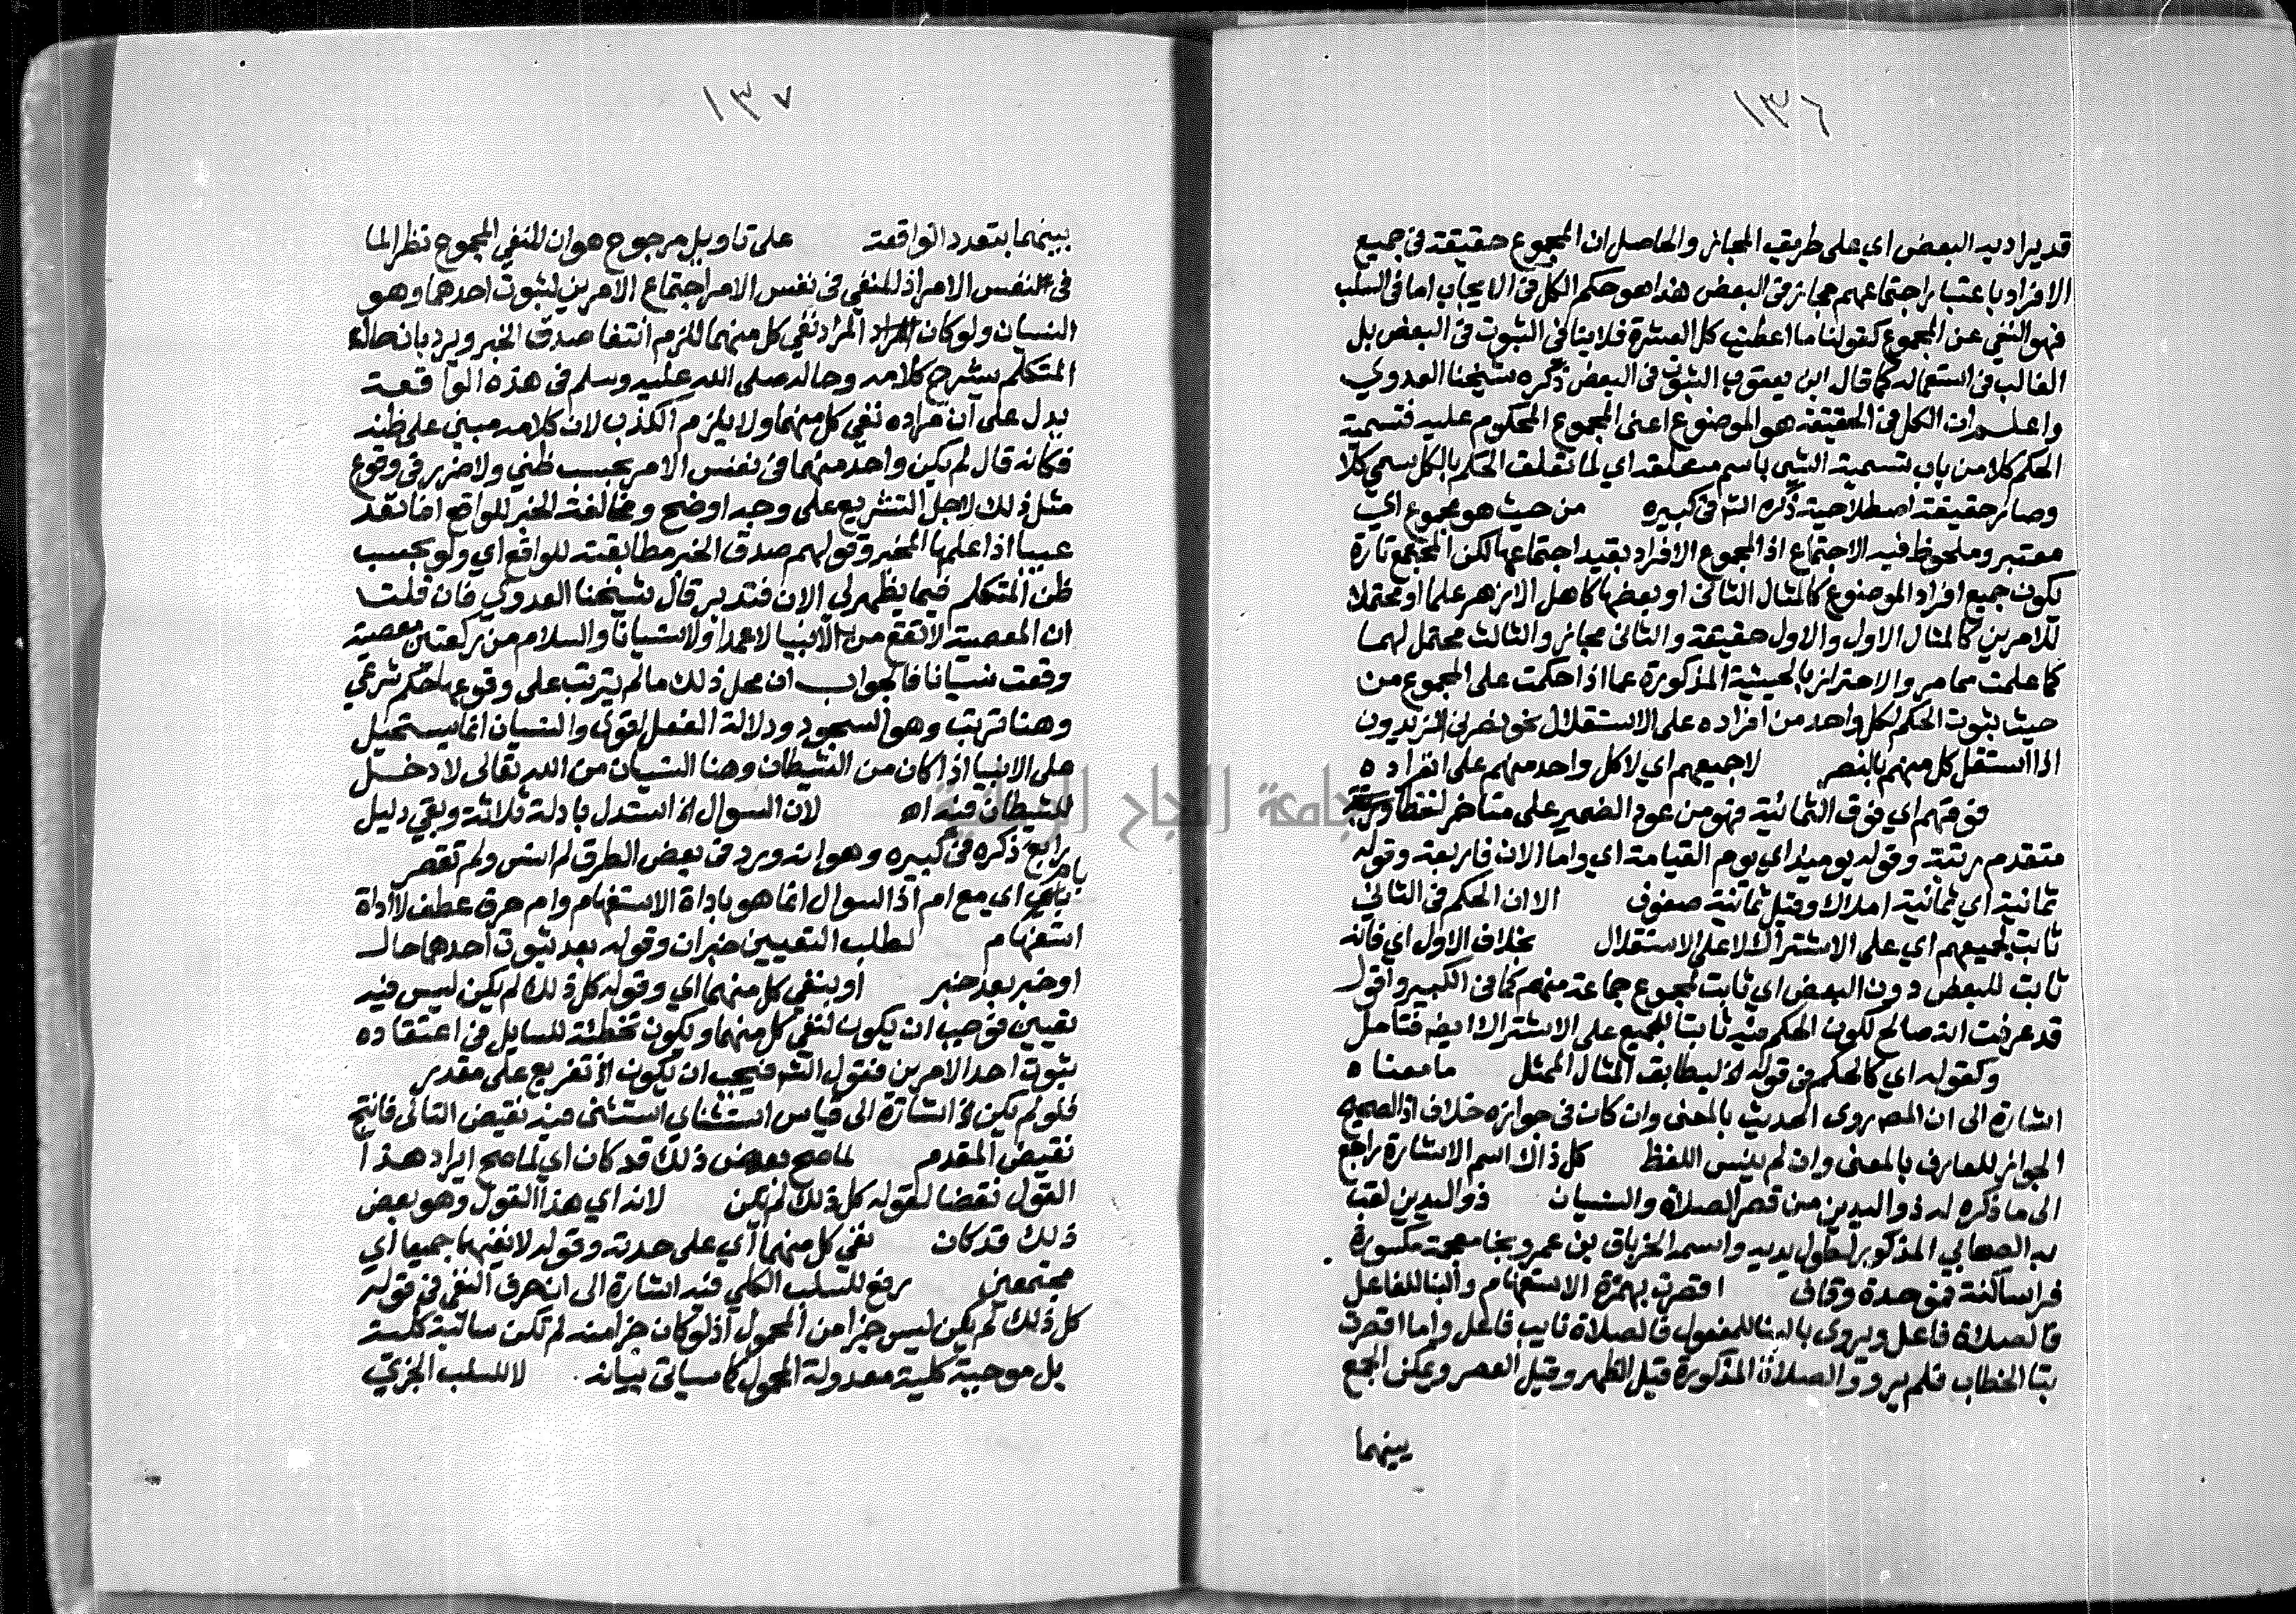 ١٣٦
قد يراد به البعض اي على طريق المجاز والحاصل ان المجموع حقيقة في جميع
الافراد باعتبار اجتماعهم مجاز في البعض هذا هو حكم الكل في الايجاب اما في السلب
فهو النفي عن المجموع كقولنا ما اعطيت كل العشرة فلا ينافي الثبوت في البعض بل
الغالب في استعماله كما قال ابن يعقوب الثبوت في البعض ذكره شيخنا العدوي
واعلم ان الكل في الحقيقة هو الموضوع اعني المجموع المحكوم عليه فتسمية
الحكم كلا من باب تسمية الشي باسم متعلقه اي لما تعلق الحكم بالكل سمي كلا
وصار حقيقة اصطلاحية ذكره الش في كبيره من حيث هو مجموع اي
معتبر وملحوظ فيه الاجتماع اذ المجموع الافراد بقيد اجتماعها لكن المجتمع تارة
تكون جميع افراد الموضوع كالمثال الثاني او بعضها كاهل الازهر علما او محتملا
للامرين كالمثال الاول والاول حقيقة والثاني مجاز والثالث محتمل لهما
كما علمت مما مر والاحتراز بالحيثية المذكورة عما اذا حكمت على المجموع من
حيث ثبوت الحكم لكل واحد من افراده على الاستقلال نحو نصرني الزيدون
اذا استقل كل منهم بالنصر لا جميعهم اي لا كل واحد منهم على انفراده
فوقهم اي فوق الثمانية فهو من عود الضمير على متاخر لفظا
متقدم رتبة وقوله يوميذ اي يوم القيامة اي واما الان فاربعة وقوله
ثمانية اي ثمانية املاك وقيل ثمانية صفوف الا ان الحكم في الثاني
ثابت لجميعهم اي على الاشتراك لا على الاستقلال بخلاف الاول اي فانه
ثابت للبعض دون البعض اي ثابت لمجموع جماعة منهم كما في الكبير واقول
قد عرفت انه صالح لكون الحكم فيه ثابتا للجميع على الاشتراك ايضا فتامل
وكقوله اي كالحكم في قوله لا ليطابق المثال الممثل ما معناه
اشارة الى ان المص روى الحديث بالمعنى وان كان في جوازه خلاف اذ الصحيح
الجواز للعارف بالمعنى وان لم ينس اللفظ كل ذاك اسم الاشارة راجع
الى ما ذكره له ذو اليدين من قصر الصلاة والنسيان ذو اليدين لقب
به الصحابي المذكور لطول يديه واسمه الخرباق بن عمرو بخا معجمة مكسورة
فرا ساكنة فموحدة وقاف اقصرت بهمزة الاستفهام والبنا للفاعل
فالصلاة فاعل ويروى بالبنا للمفعول فالصلاة نايب فاعل واما اقصرت
بتا الخطاب فلم يرو والصلاة المذكورة قيل الظهر وقيل العصر ويمكن الجمع
بينهما
١٣٧
بينهما بتعدد الواقعة على تاويل مرجوح هو ان للنفي المجموع نظرا لما
في نفس الامر اذ المنفي في نفس الامر اجتماع الامرين لثبوت احدهما وهو
النسيان ولو كان المراد نفي كل منهما للزم انتفا صدق الخبر ويرد بان حال
المتكلم يشرح كلامه وحاله صلى الله عليه وسلم في هذه الواقعة
يدل على ان مراده نفي كل منهما ولا يلزم الكذب لان كلامه مبني على ظنه
فكانه قال لم يكن واحد منهما في نفس الامر بحسب ظني ولا ضرر في وقوع
مثل ذلك لاجل التشريع على وجه اوضح ومخالفة الخبر للواقع انما تعد
عيبا اذا علمها المخبر وقولهم صدق الخبر مطابقته للواقع اي ولو بحسب
ظن المتكلم فيما يظهر لي الان فتدبر قال شيخنا العدوي فان قلت
ان المعصية لا تقع من الانبيا لا عمدا ولا نسيانا والسلام من ركعتين معصية
وقعت نسيانا فالجواب ان محل ذلك ما لم يترتب على وقوعها حكم شرعي
وهنا ترتب وهو السجود ودلالة الفعل اقوى والنسيان انما يستحيل
على الانبيا اذا كان من الشيطان وهنا النسيان من الله تعالى لا دخل
للشيطان فيه اه لان السوال الخ استدل بادلة ثلاثة وبقي دليل
رابع ذكره في كبيره وهو انه ورد في بعض الطرق لم انس ولم تقصر
بام اي مع ام اذ السوال انما هو باداة الاستفهام وام حرف عطف لا اداة
استفهام لطلب التعيين خبر ان وقوله بعد ثبوت احدهما حال
او خبر بعد خبر او بنفي كل منهما اي وقوله كل ذلك لم يكن ليس فيه
تعيين فوجب ان يكون لنفي كل منهما ويكون تخطئة للسايل في اعتقاده
ثبوت احد الامرين فقول الش فيجب ان يكون الخ تفريع على مقدر
فلو لم يكن الخ اشارة الى قياس استثناي استثنى فيه نقيض التالي فانتج
نقيض المقدم لما صح بعض ذلك قد كان اي لما صح ايراد هذا
القول نقضا لقوله كل ذلك لم يكن لانه اي هذا القول وهو بعض
ذلك قد كان نفي كل منهما اي على حدته وقوله لا نفيهما جميعا اي
مجتمعين رفع للسلب الكلي فيه اشارة الى ان حرف النفي في قوله
كل ذلك لم يكن ليس جزا من المحمول اذ لو كان جزا منه لم تكن سالبة كلية
بل موجبة كلية معدولة المحمول كما سياتي بيانه. لا للسلب الجزئي
جامعة النجاح الوطنية